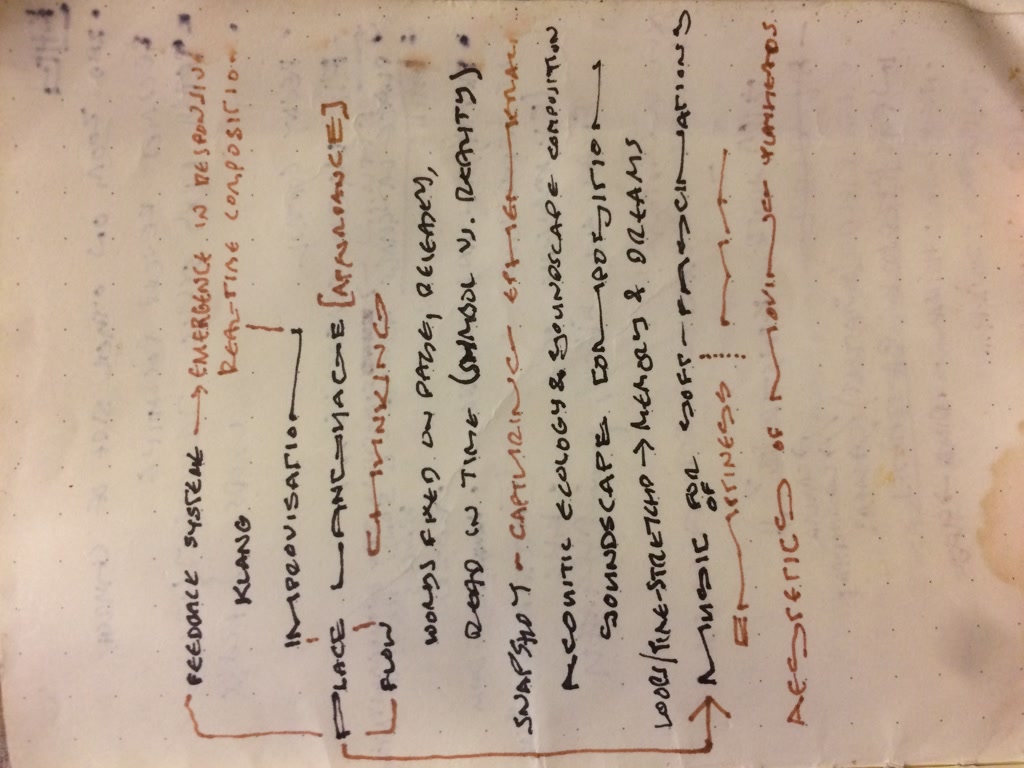 FEEDBACK SYSTEMS → EMERGENCE IN RESPONSIVE
REAL-TIME COMPOSITION
KLANG
IMPROVISATION
PLACE LANGUAGE [APPEARANCE]
FLOW CHUNKING
WORDS FIXED ON PAGE, RELEASED,
READ IN TIME (SYMBOL VS. REALITY)
SNAPSHOT - CAPTURING EPHEMERAL
ACOUSTIC ECOLOGY & SOUNDSCAPE COMPOSITION
SOUNDSCAPE COMPOSITION
LOOPS/TIME-STRETCHED → MEMORY & DREAMS
MUSIC FOR SOFT-FASCINATIONS
OF
EMPTINESS MA
AESTETICS OF MOVING PLAYHEADS